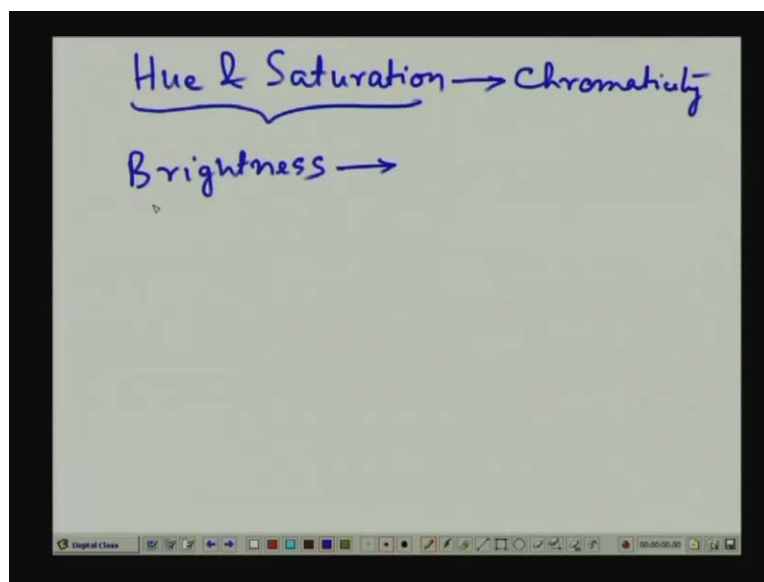 Hue & Saturation → Chromaticity
Brightness →
Digital Class
00:00:00.00